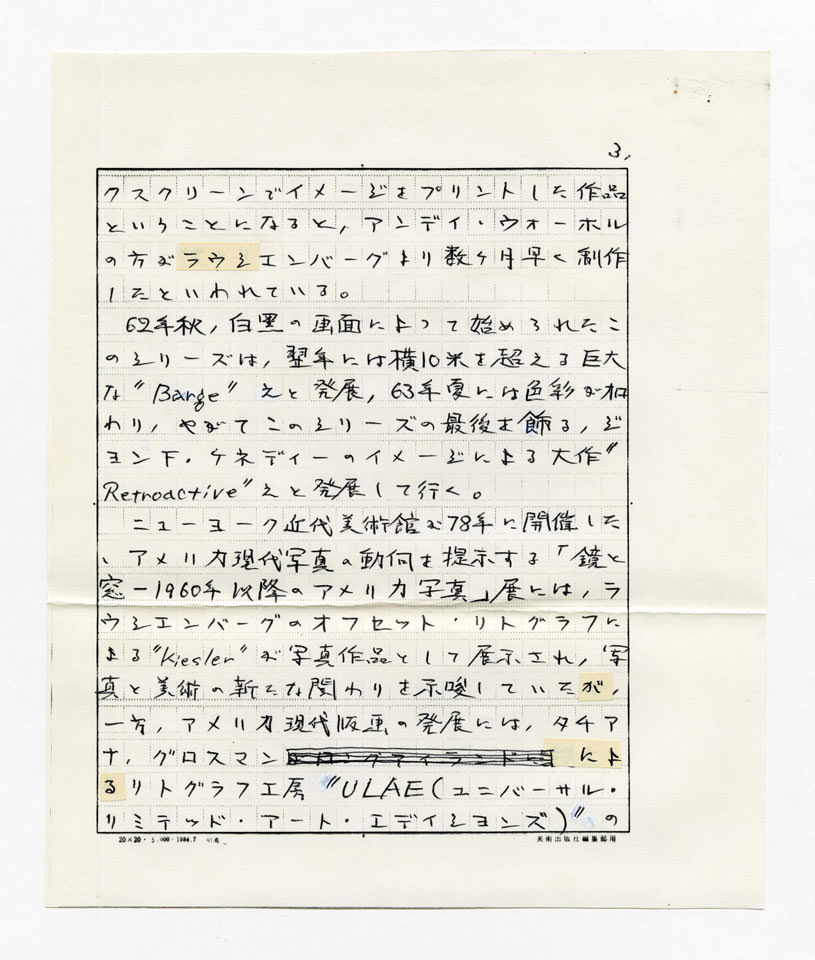 3,
クスクリーンでイメージをプリントした作品
ということになると,アンディ・ウォーホル
の方がラウシエンバーグより数ヶ月早く制作
したといわれている。
62年秋,白黒の画面によって始められたこ
のシリーズは,翌年には横10米を超える巨大
な"Barge"えと発展,63年夏には色彩が加
わり,やがてこのシリーズの最後を飾る,ジ
ョンF・ケネディーのイメージによる大作"
Retroactive"えと発展して行く。
ニューヨーク近代美術館が78年に開催した
、アメリカ現代写真の動向を提示する「鏡と
窓-1960年以降のアメリカ写真」展には,ラ
ウシエンバーグのオフセット・リトグラフに
よる"Kiesler"が写真作品として展示され,写
真と美術の新たな関わりを示唆していたが,
一方,アメリカ現代版画の発展には,タチア
ナ,グロスマン によ
るリトグラフ工房"ULAE(ユニバーサル・
リミテッド・アート・エディションズ)"の
20×20・5.000・1984.7
美術出版社編集部用